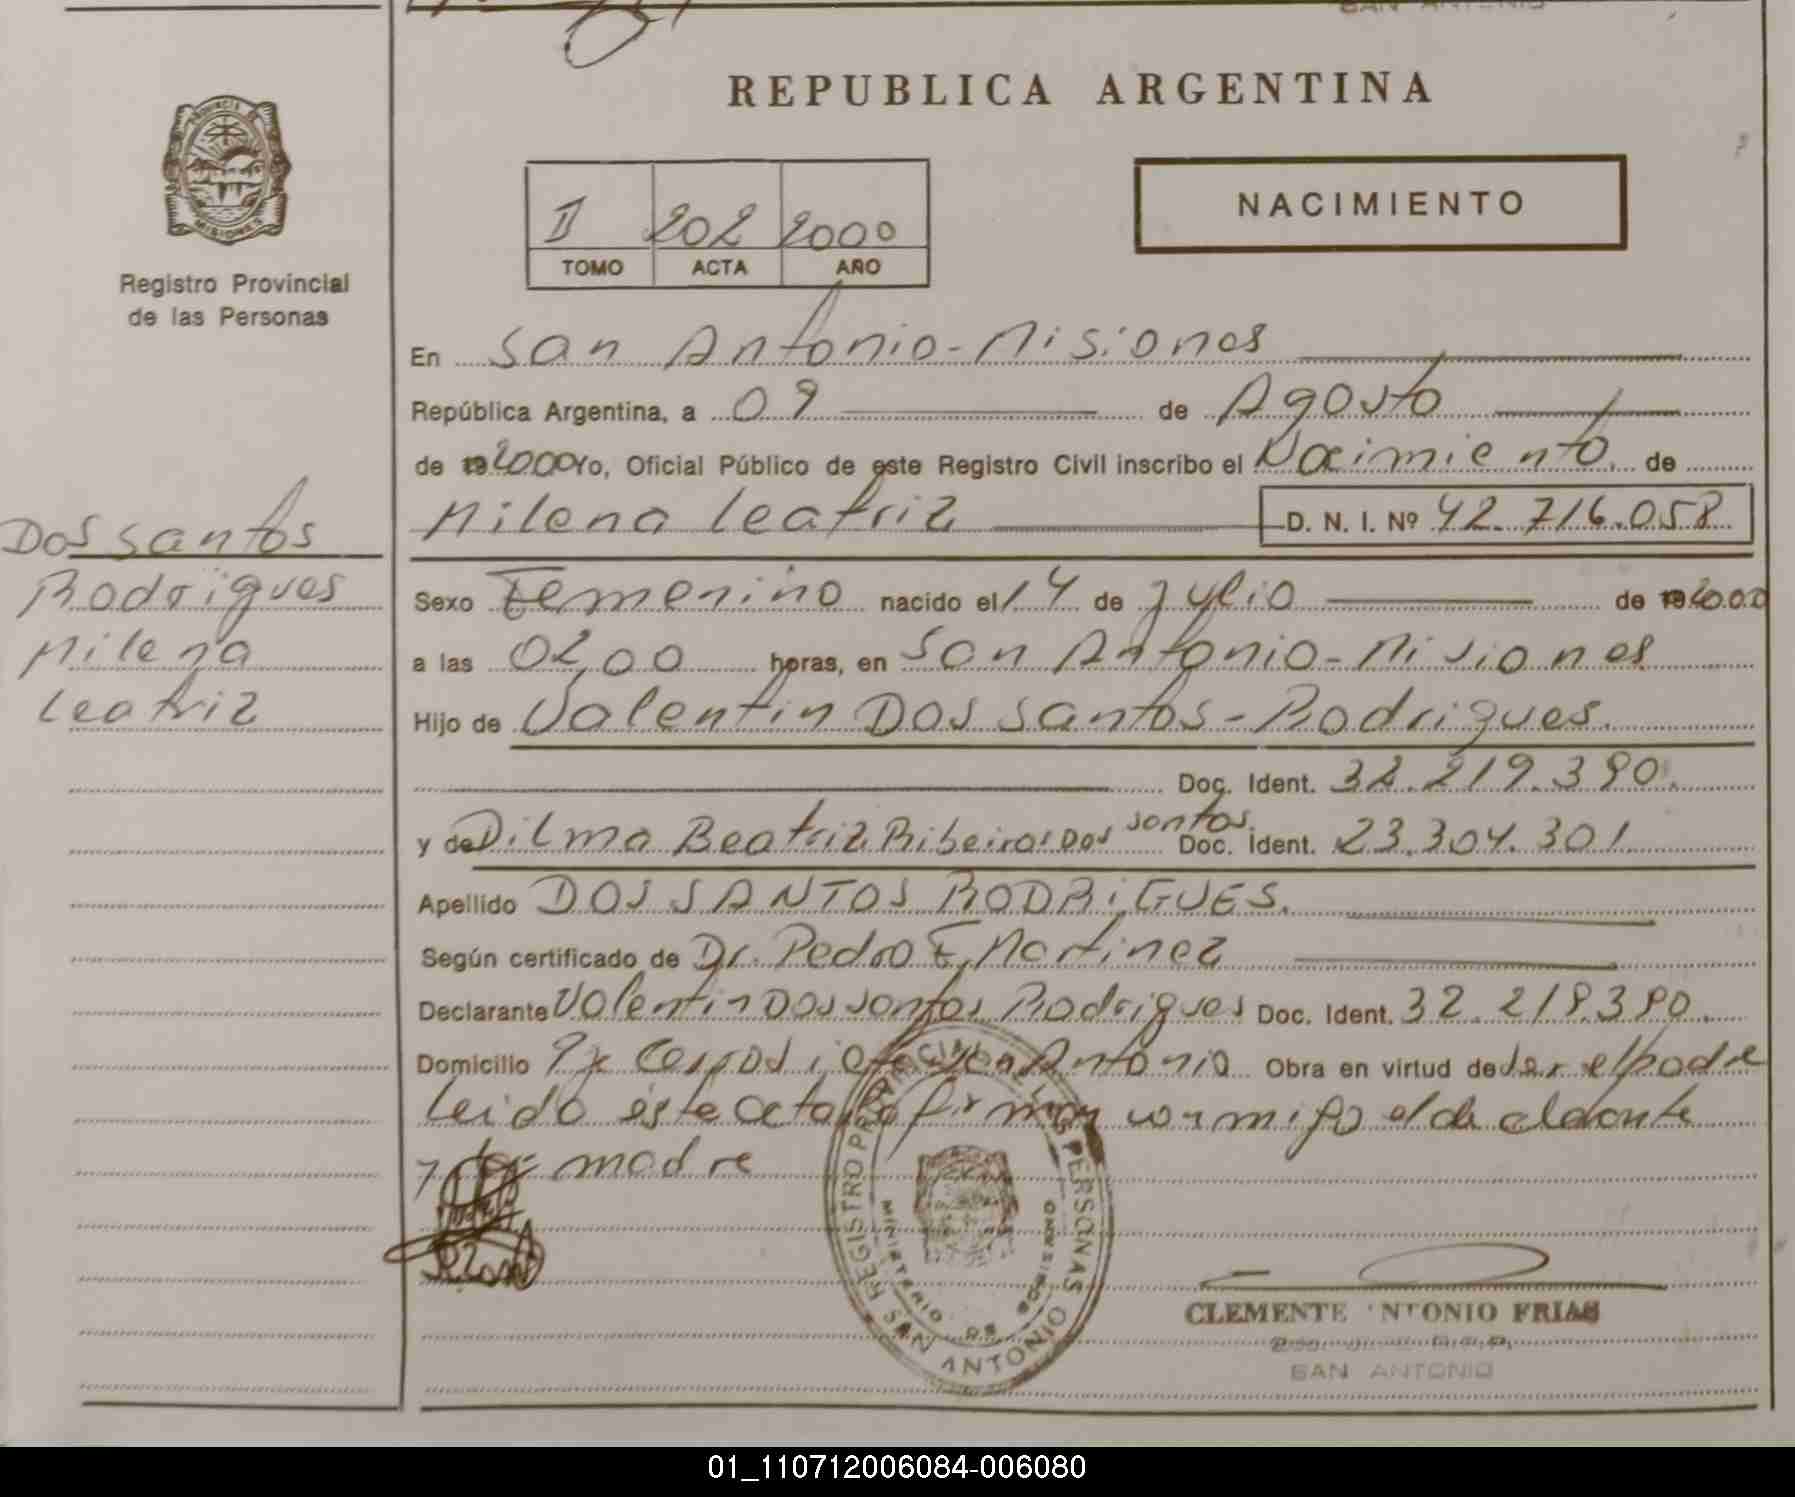 SAN ANTONIO
REPUBLICA ARGENTINA
PROVINCIA DE
MISIONES
Registro Provincial
de las Personas
NACIMIENTO
II 202 2000
TOMO ACTA AÑO
En San Antonio - Misiones
República Argentina, a 09 de Agosto
de 19 2000 Yo, Oficial Público de este Registro Civil inscribo el Nacimiento de
Milena Leatriz D. N. I. Nº 42.716.058
Dos santos
Rodrigues
Milena
Leatriz
Sexo Femenino nacido el 14 de Julio de 19 2000
a las 02,00 horas, en San Antonio - Misiones
Hijo de Valentin Dos santos - Rodrigues.
Doc. Ident. 32.219.390.
y de Dilma Beatriz Ribeiro Dos santos Doc. Ident. 23.304.301
Apellido DOS SANTOS RODRIGUES.
Según certificado de Dr. Pedro E, Martinez
Declarante Valentin Dos santos Rodrigues Doc. Ident. 32.219.390.
Domicilio San Antonio Obra en virtud de ser el padre
Leido este acta la firman conmigo el declarante
y la madre
REGISTRO PROVINCIAL DE LAS PERSONAS
MINISTERIO DE GOBIERNO
SAN ANTONIO
CLEMENTE ANTONIO FRIAS
SAN ANTONIO
01_110712006084-006080